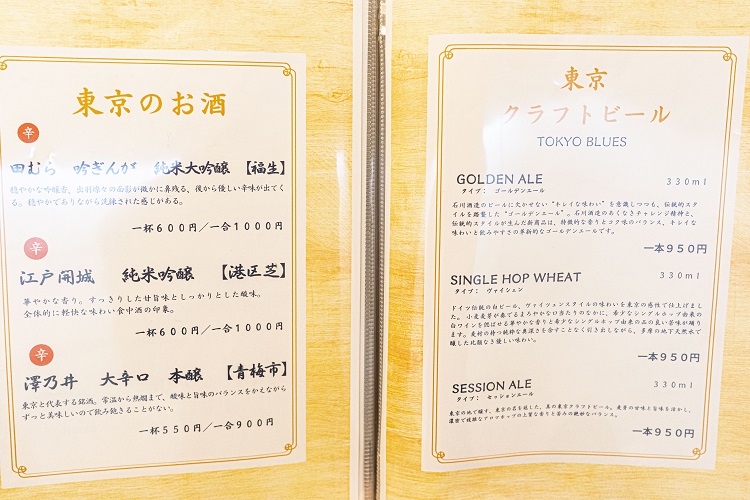 東京のお酒
辛
田むら 吟ぎんが 純米大吟醸 【福生】
穏やかな吟醸香、出羽燦々の面影が微かに鼻残る、後から優しい辛味が出てく
る。穏やかでありながら洗練された感じがある。
一杯600円/一合1000円
辛
江戸開城 純米吟醸 【港区芝】
華やかな香り。すっきりした甘旨味としっかりとした酸味。
全体的に軽快な味わい食中酒の印象。
一杯600円/一合1000円
辛
澤乃井 大辛口 本醸 【青梅市】
東京と代表する銘酒。常温から熱燗まで、酸味と旨味のバランスをかえながら
ずっと美味しいので飲み飽きることがない。
一杯550円/一合900円
東京
クラフトビール
TOKYO BLUES
GOLDEN ALE 330ml
タイプ: ゴールデンエール
石川酒造のビールに欠かせない“キレイな味わい”を意識しつつも、伝統的スタ
イルを踏襲した“ゴールデンエール”。石川酒造のあくなきチャレンジ精神と、
伝統的スタイルが生んだ新商品は、特徴的な香りとコク味のバランス、キレイな
味わいと飲みやすさの革新的なゴールデンエールです。
一本950円
SINGLE HOP WHEAT 330ml
タイプ: ヴァイツェン
ドイツ伝統の白ビール、ヴァイツェンスタイルの味わいを東京の感性で仕上げまし
た。小麦麦芽が奏でるまろやかな口あたりのなかに、希少なシングルホップ由来の
白ワインを偲ばせる華やかな香りと希少なシングルホップ由来の品の良い苦味が踊り
ます。麦材の持つ純粋な奥深さを余すことなく引き出しながら、多摩の地下天然水で
醸した比類なき優しい味わい。
一本950円
SESSION ALE 330ml
タイプ: セッションエール
東京の地で醸す、東京の名を冠した、真の東京クラフトビール。麦芽の甘味と旨味を活かし、
濃密で複雑なアロマホップの上質な香りと苦みの絶妙なバランス。
一本950円